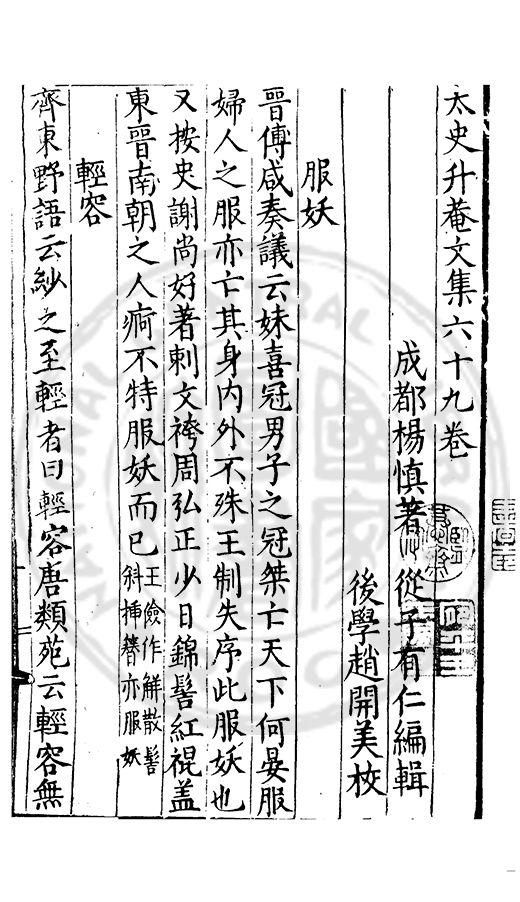 太史升菴文集六十九卷
成都楊慎著 從子有仁編輯
後學趙開美校
服妖
晉傅咸奏議云妹喜冠男子之冠桀亡天下何晏服
婦人之服亦亡其身內外不殊王制失序此服妖也
又按史謝尚好著刺文袴周弘正少日錦髻紅裩盖
東晉南朝之人痾不特服妖而已王儉作解散髻
斜揷簪亦服妖
輕容
齊東野語云紗之至輕者曰輕容唐類苑云輕容無